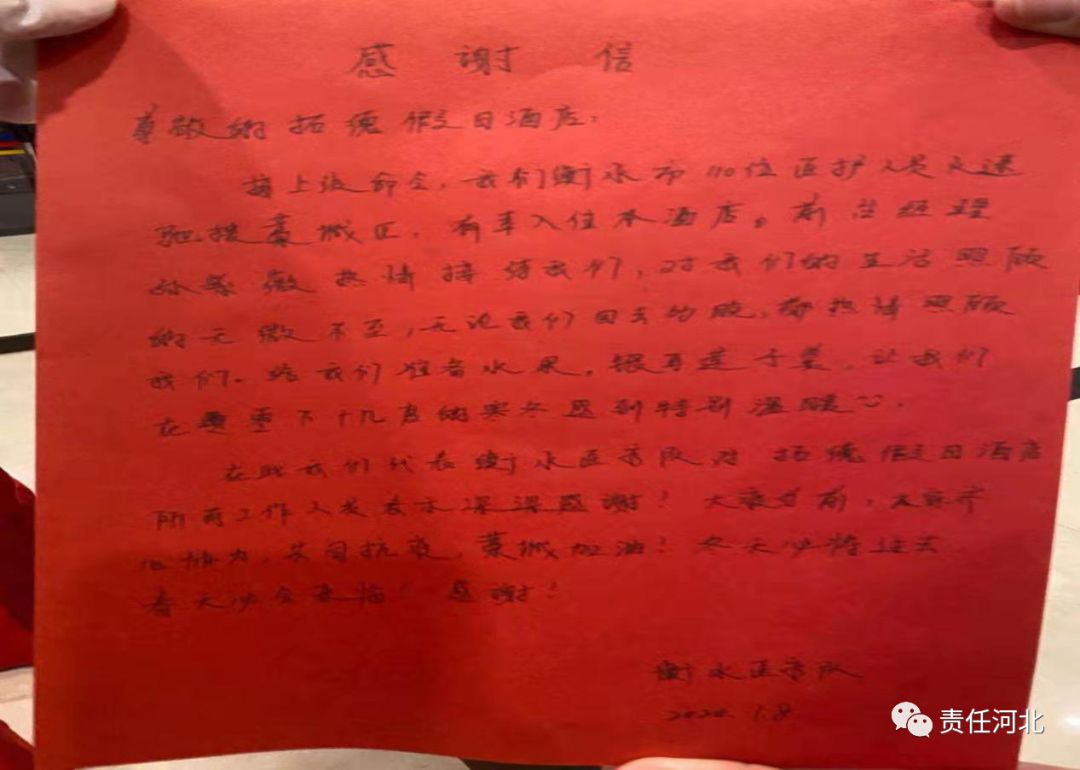 感谢信
尊敬的拓德假日酒店：
接上级命令，我们衡水市110位医护人员火速
驰援藁城区，有幸入住本酒店。前台经理
孙 微热情接待我们，对我们的生活照顾
的无微不至，无论我们回去的晚，都热情照顾
我们。给我们准备水果，银耳莲子羹，让我们
在零下十几度的寒冬感到特别温暖
在此我们代表衡水医疗队对拓德假日酒店
所有工作人员表示深深感谢！大衰当前，大家齐
心协力，共同抗疫，藁城加油！冬天必将过去
春天必会来临！感谢！
衡水医疗队
2020.1.8
责任河北